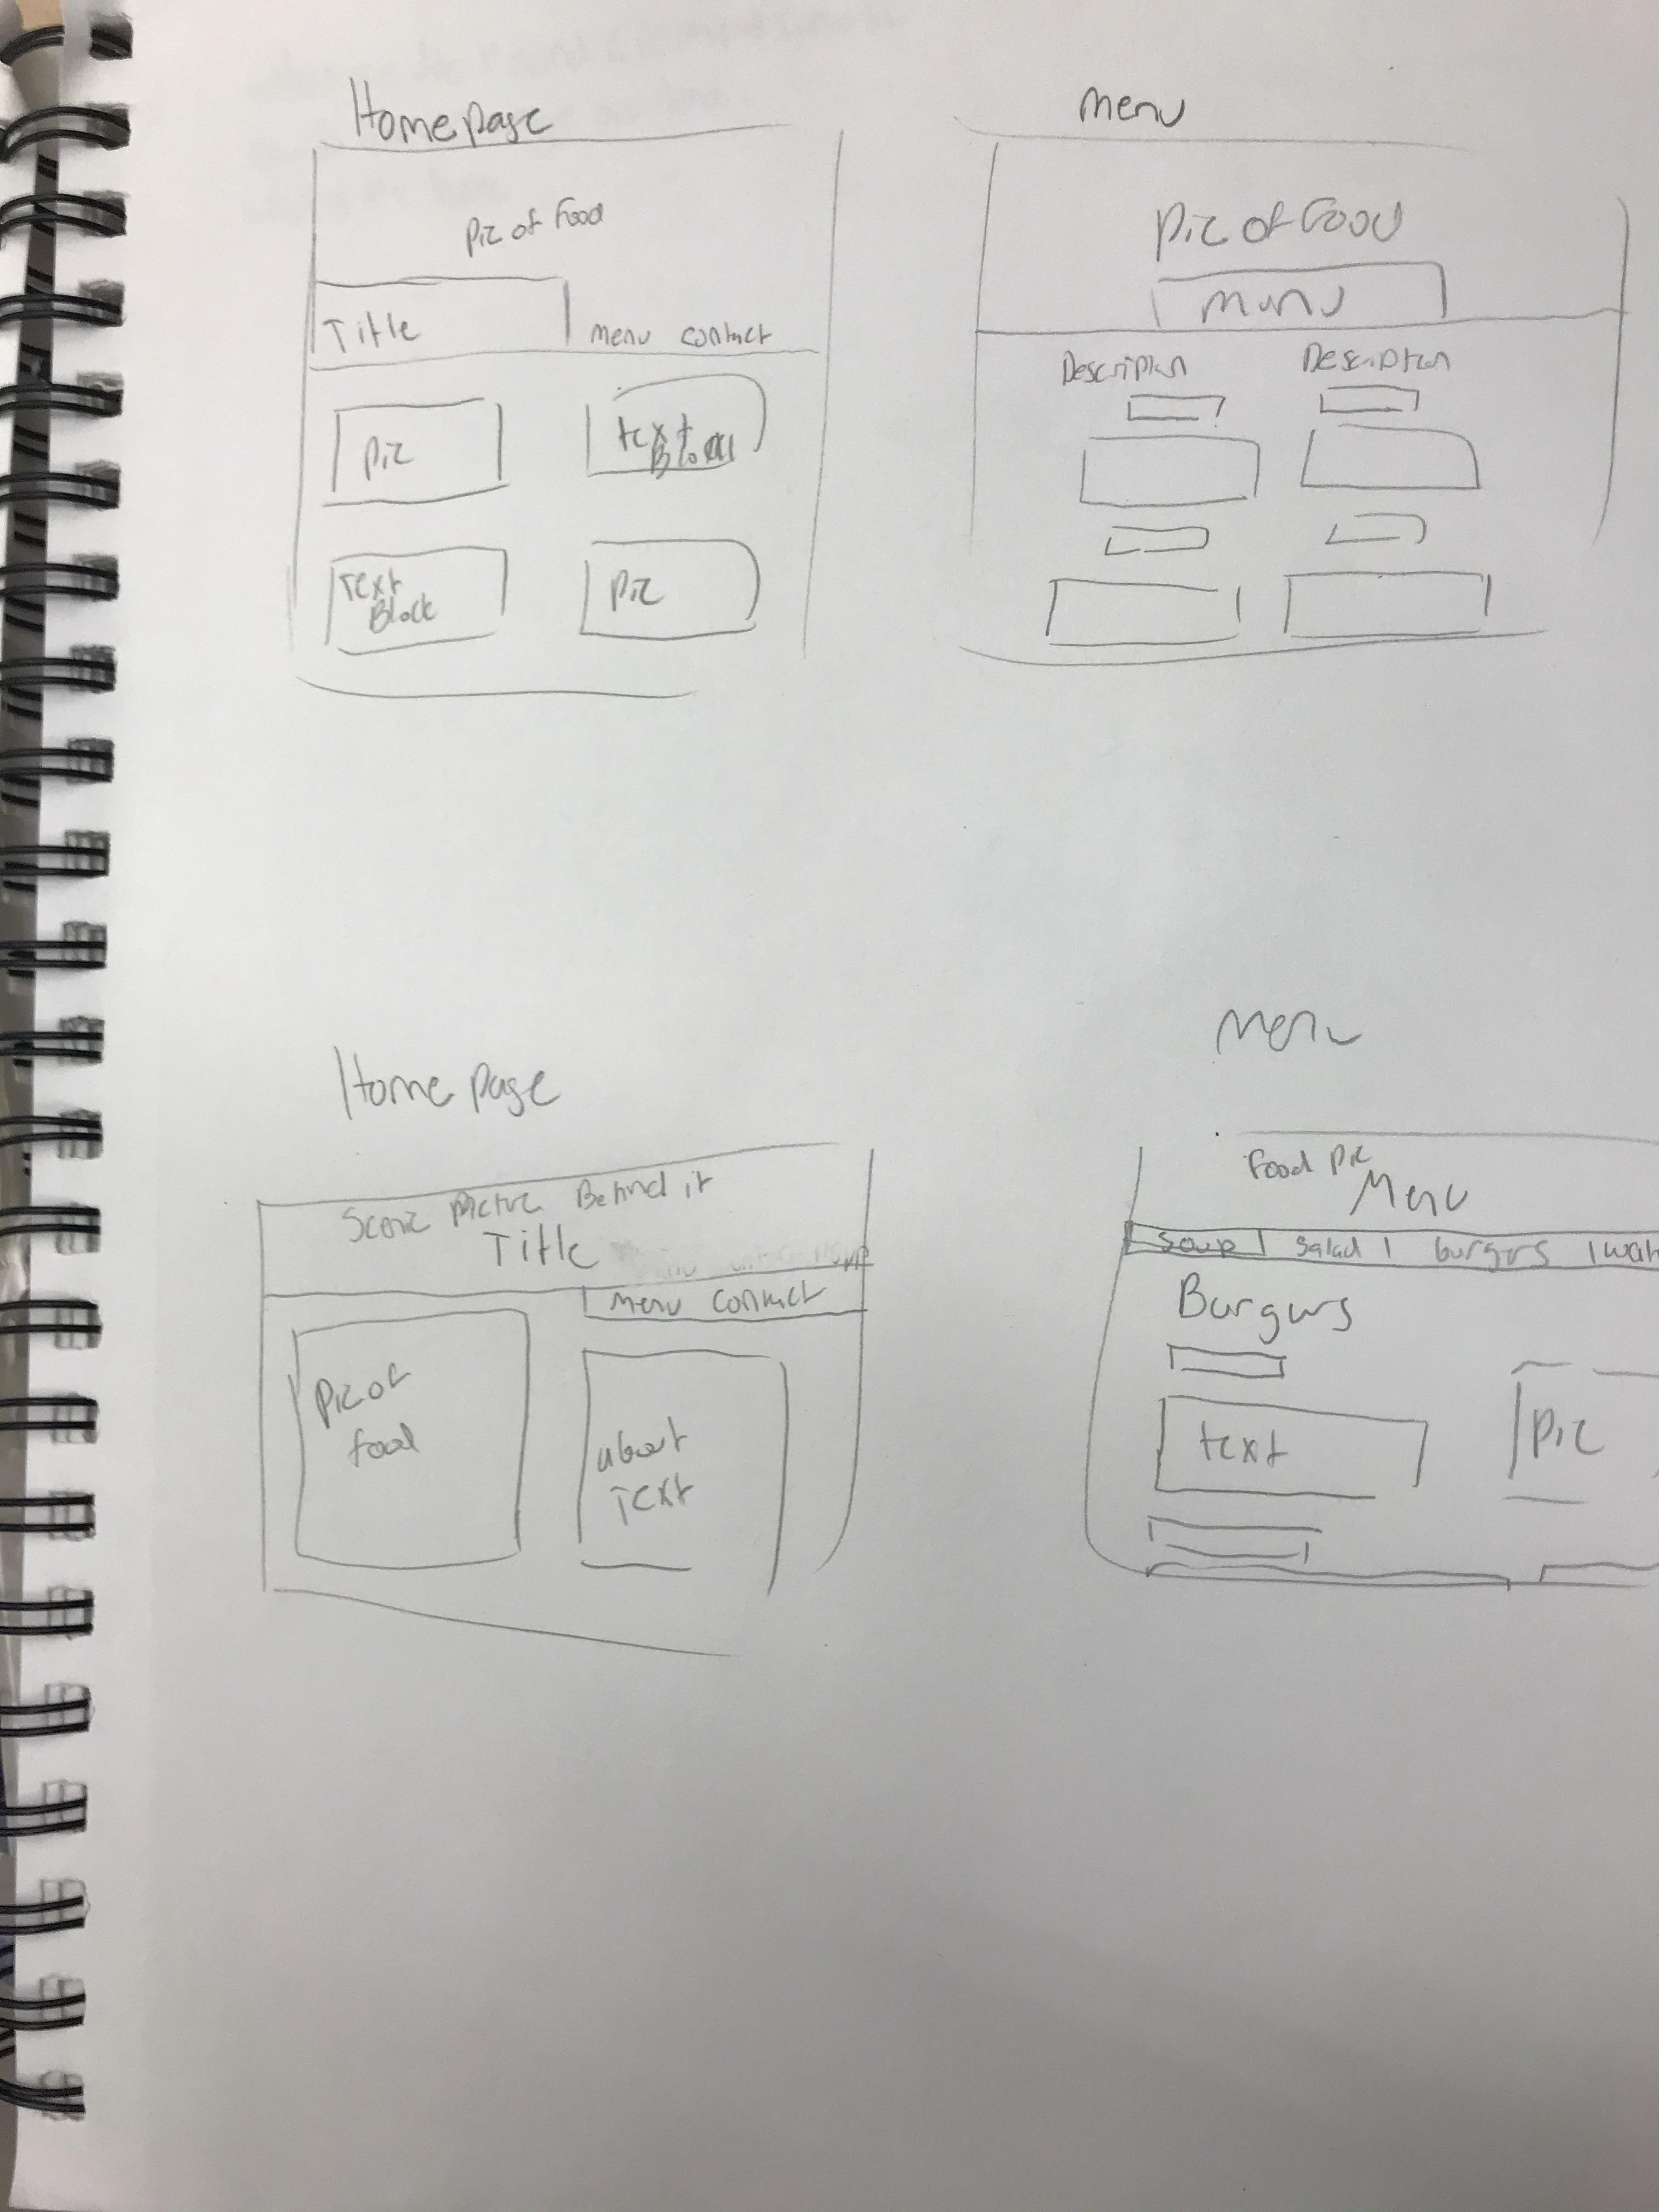 Homepage
Pic of Food
Title
Menu Contact
Pic
text
Block
Text
Block
Pic
Menu
Pic of Food
Menu
Description
Description
Home page
Scenic Picture Behind it
Title
Menu Contact
Pic of
food
About
Text
Menu
Food Pic
Menu
Soup | Salad | burgers |
Burgers
text
Pic